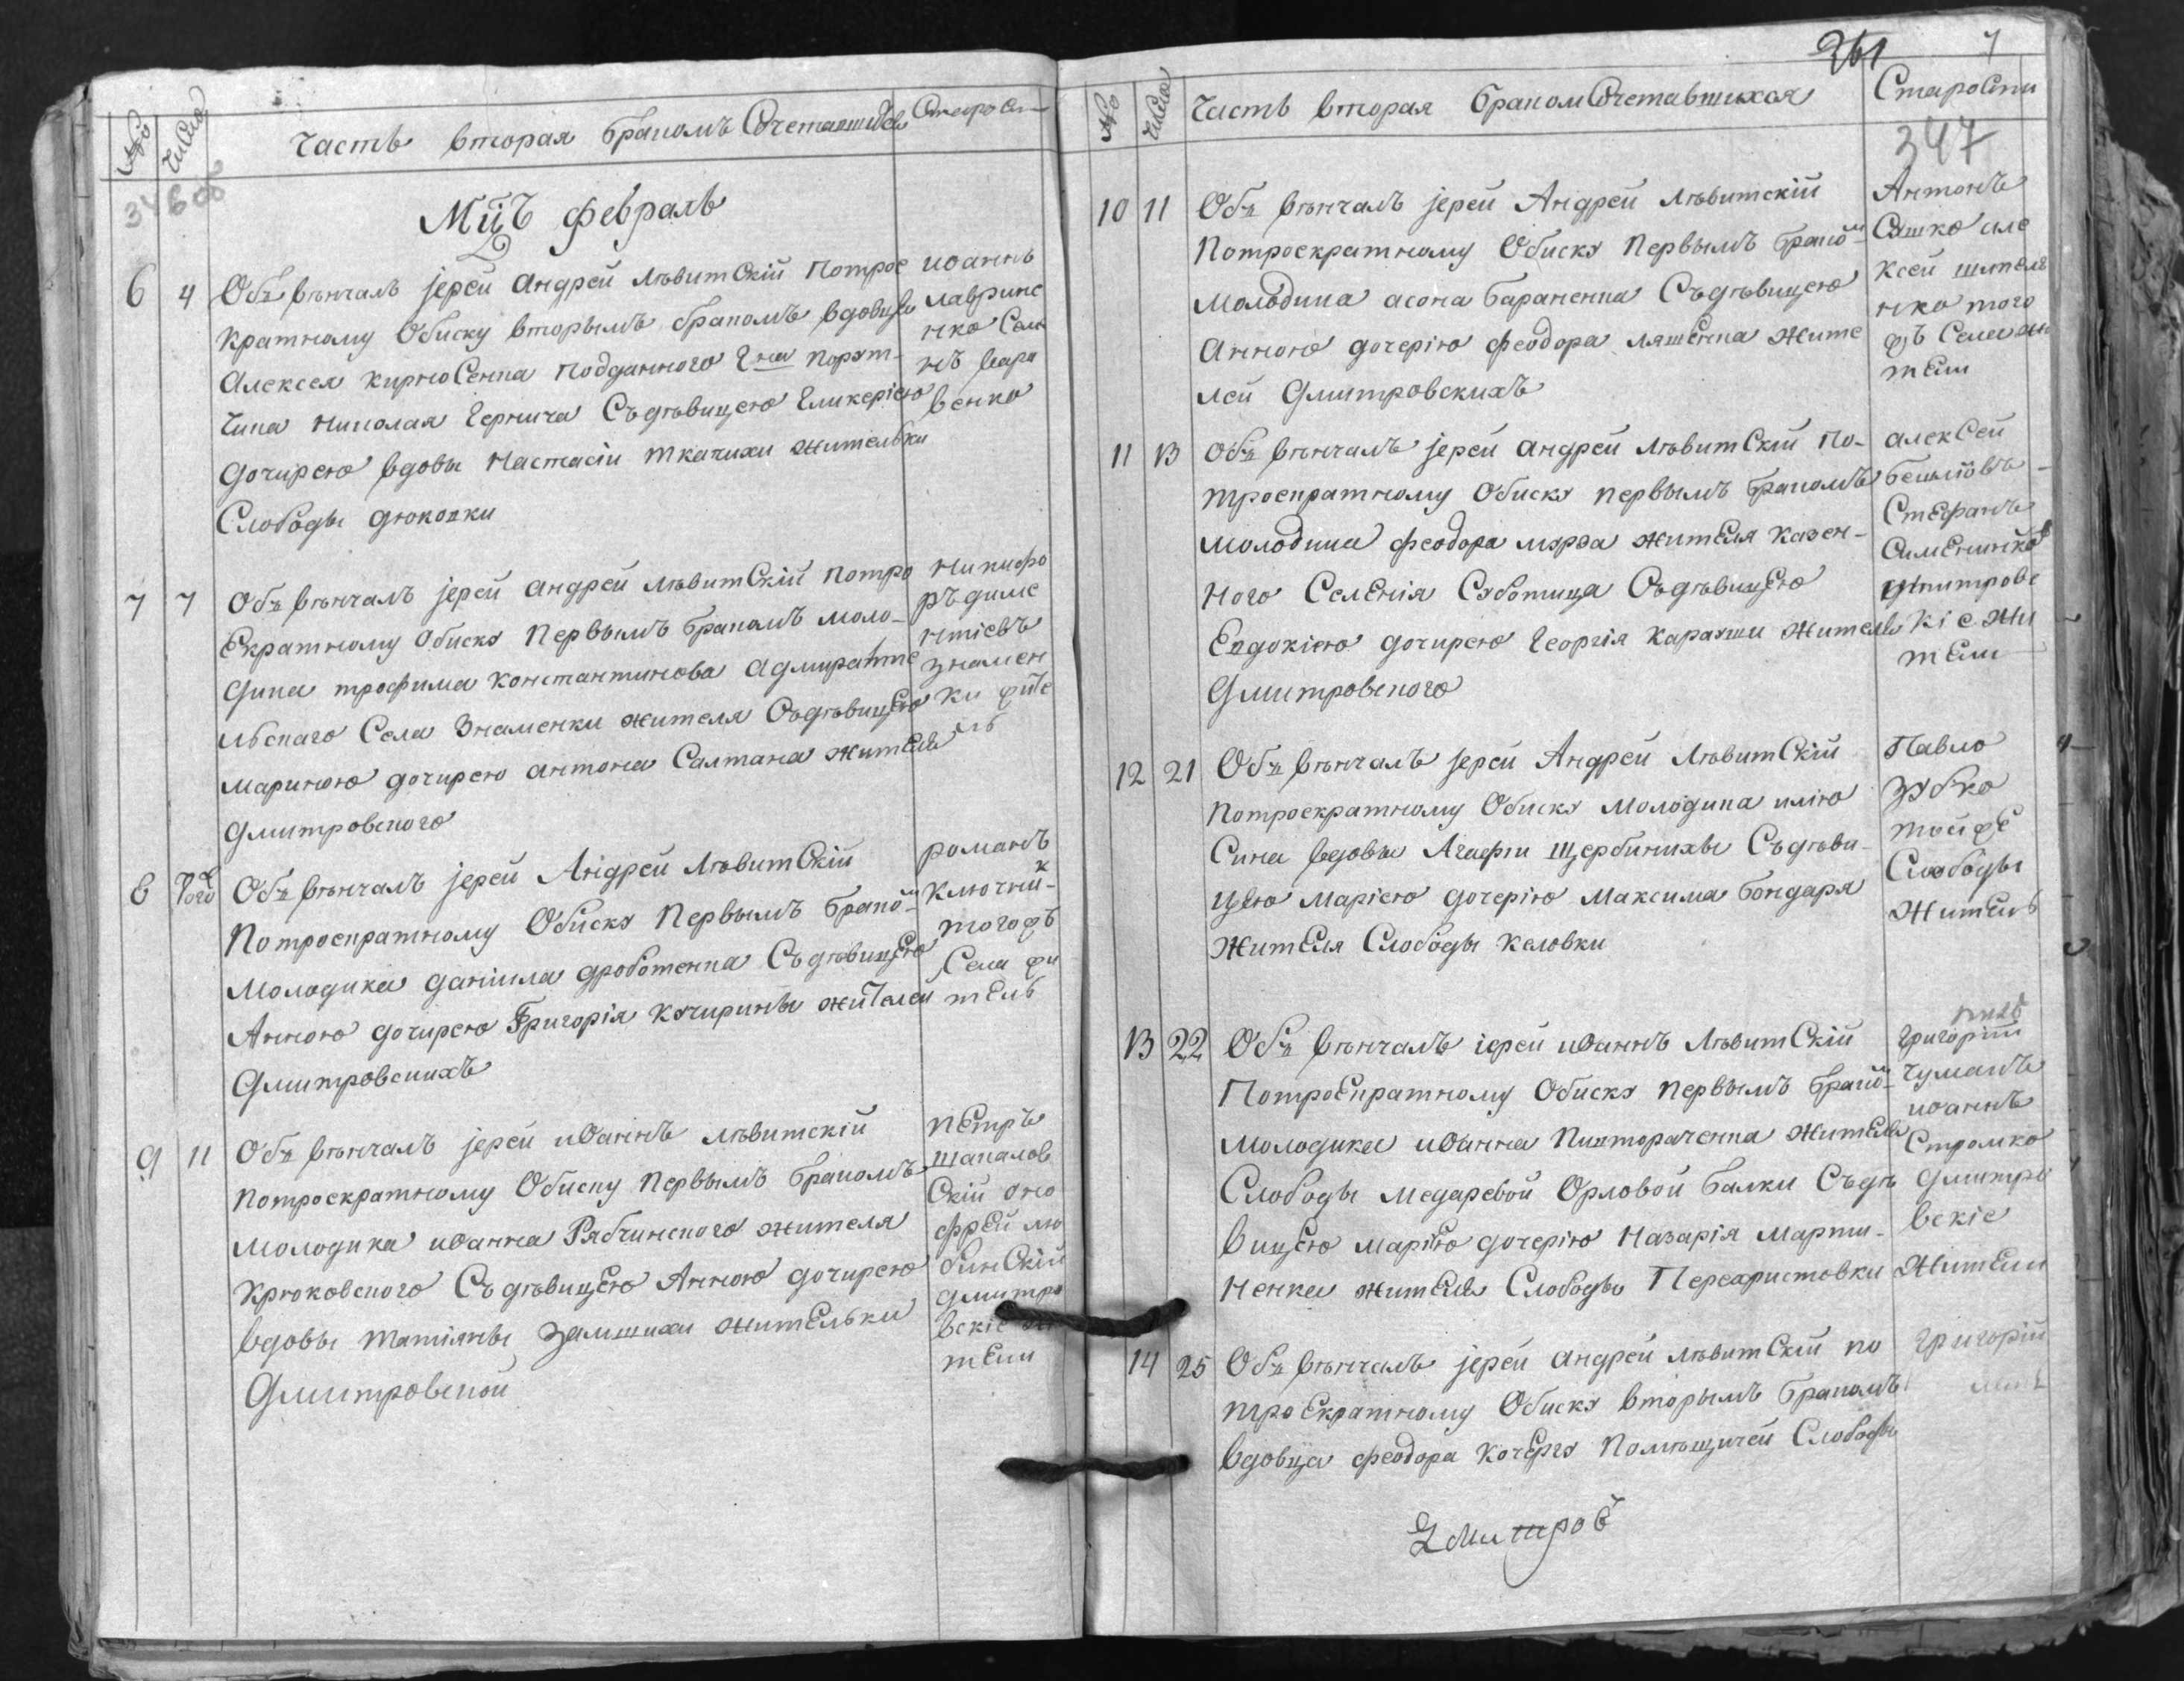 Число
Часть вторая бракомъ Сочетавшихся
Старости
346 об
Мцъ февраль
6 4 Объ вѣнчалъ іерей Андрей ЛѣвитСкій потрое
кратному Обиску вторымъ бракомъ вдовца
Алексея кирноСенка подданного
чика николая чернича Съдѣвицею Гликеріею
дочирею вдовы Настасіи ткачихи жительки
Слободы дюковки
иоаннъ
лаврине
нко Семе
нъ вара
венко
7 7 Объ вѣнчалъ іерей андрей лѣвитСкій потро
Екратному обискȣ Первымъ бракомъ моло-
дика трофима константинова адмиралте
йскаго Села Знаменки жителя СъдѣвицЕю
мариною дочирею антона Салтана жителя
дмитровского
никифо
ръ диме
нтіевъ
знамен
ки жите
ль
8 того Объ вѣнчалъ іерей Андрей ЛѣвитСкій
Потроекратному Обискȣ Первымъ брако-м
молодика даніила дроботенка СъдѣвицЕю
Анною дочирею Григорія кȣчирины жителей
дмитровскихъ
романъ
ключник-
тогожъ
Села жи
тЕль
9 11 Объ вѣнчалъ іерей иоаннъ лѣвитскій
потроекратному Обиску Первымъ бракомъ
молодика иоанна Рябчинского жителя
крюковского СъдѣвицЕю Анною дочирею
вдовы татіяны Замшихи житЕльки
дмитровской
пЕтръ
шапалов
Скій оно
фрЕй лю
бинСкій
дмитро
вскіе жи
тЕли
261 7
Число
Часть вторая бракомъ Сочетавшихся
Старости
347
10 11 Объ вѣнчалъ іерей Андрей лѣвитскій
Потроекратному Обискȣ Первымъ брако-м
молодика асона бараненка Съдѣвицею
анною дочерію феодора ляшЕнка жите
лей дмитровскихъ
Антонъ
Сяшко але
ксей
нко того
жъ Села жи
тЕли
11 13 Объ вѣнчалъ іерей андрей лѣвитСкій По-
троекратному Обискȣ первымъ бракомъ
молодика феодора мȣрза житЕля казен-
ного СелЕнія Сȣботица СъдѣвицЕю
Евдокією дочирею Георгія караȣши жителя
дмитровского
алекСей
Стефанъ
СимЕнинко
дмитровс
кіе жи
тЕли
12 21 Объ вѣнчалъ іерей Андрей ЛѣвитСкій
потроекратному Обискȣ молодика илію
Сина вдовы Агафіи щербинихы Съдѣви
цею Маріею дочерію Максима бондаря
житЕля Слободы келовки
Павло
зȣбко
тойжЕ
Слободы
житЕль
13 22 Объ вѣнчалъ іерей иоаннъ ЛѣвитСкій
ПотроЕкратному Обискȣ первымъ брако-м
молодика иоанна Пивтораченка житЕля
Слободы медаревой Орловой балки Съдѣ
вицЕю маріЕю дочерію Назарія марти-
ненка житЕля Слободы Переаристовки
григорій
чуманъ
иоаннъ
Стромко
дмитро
вскіе
житЕли
14 25 Объ вѣнчалъ іерей андрей лѣвитСкій по
троЕкратному Обискȣ вторымъ бракомъ
вдовца феодора кочЕргȣ Помѣщичей Слободы
григорій
Дмитров